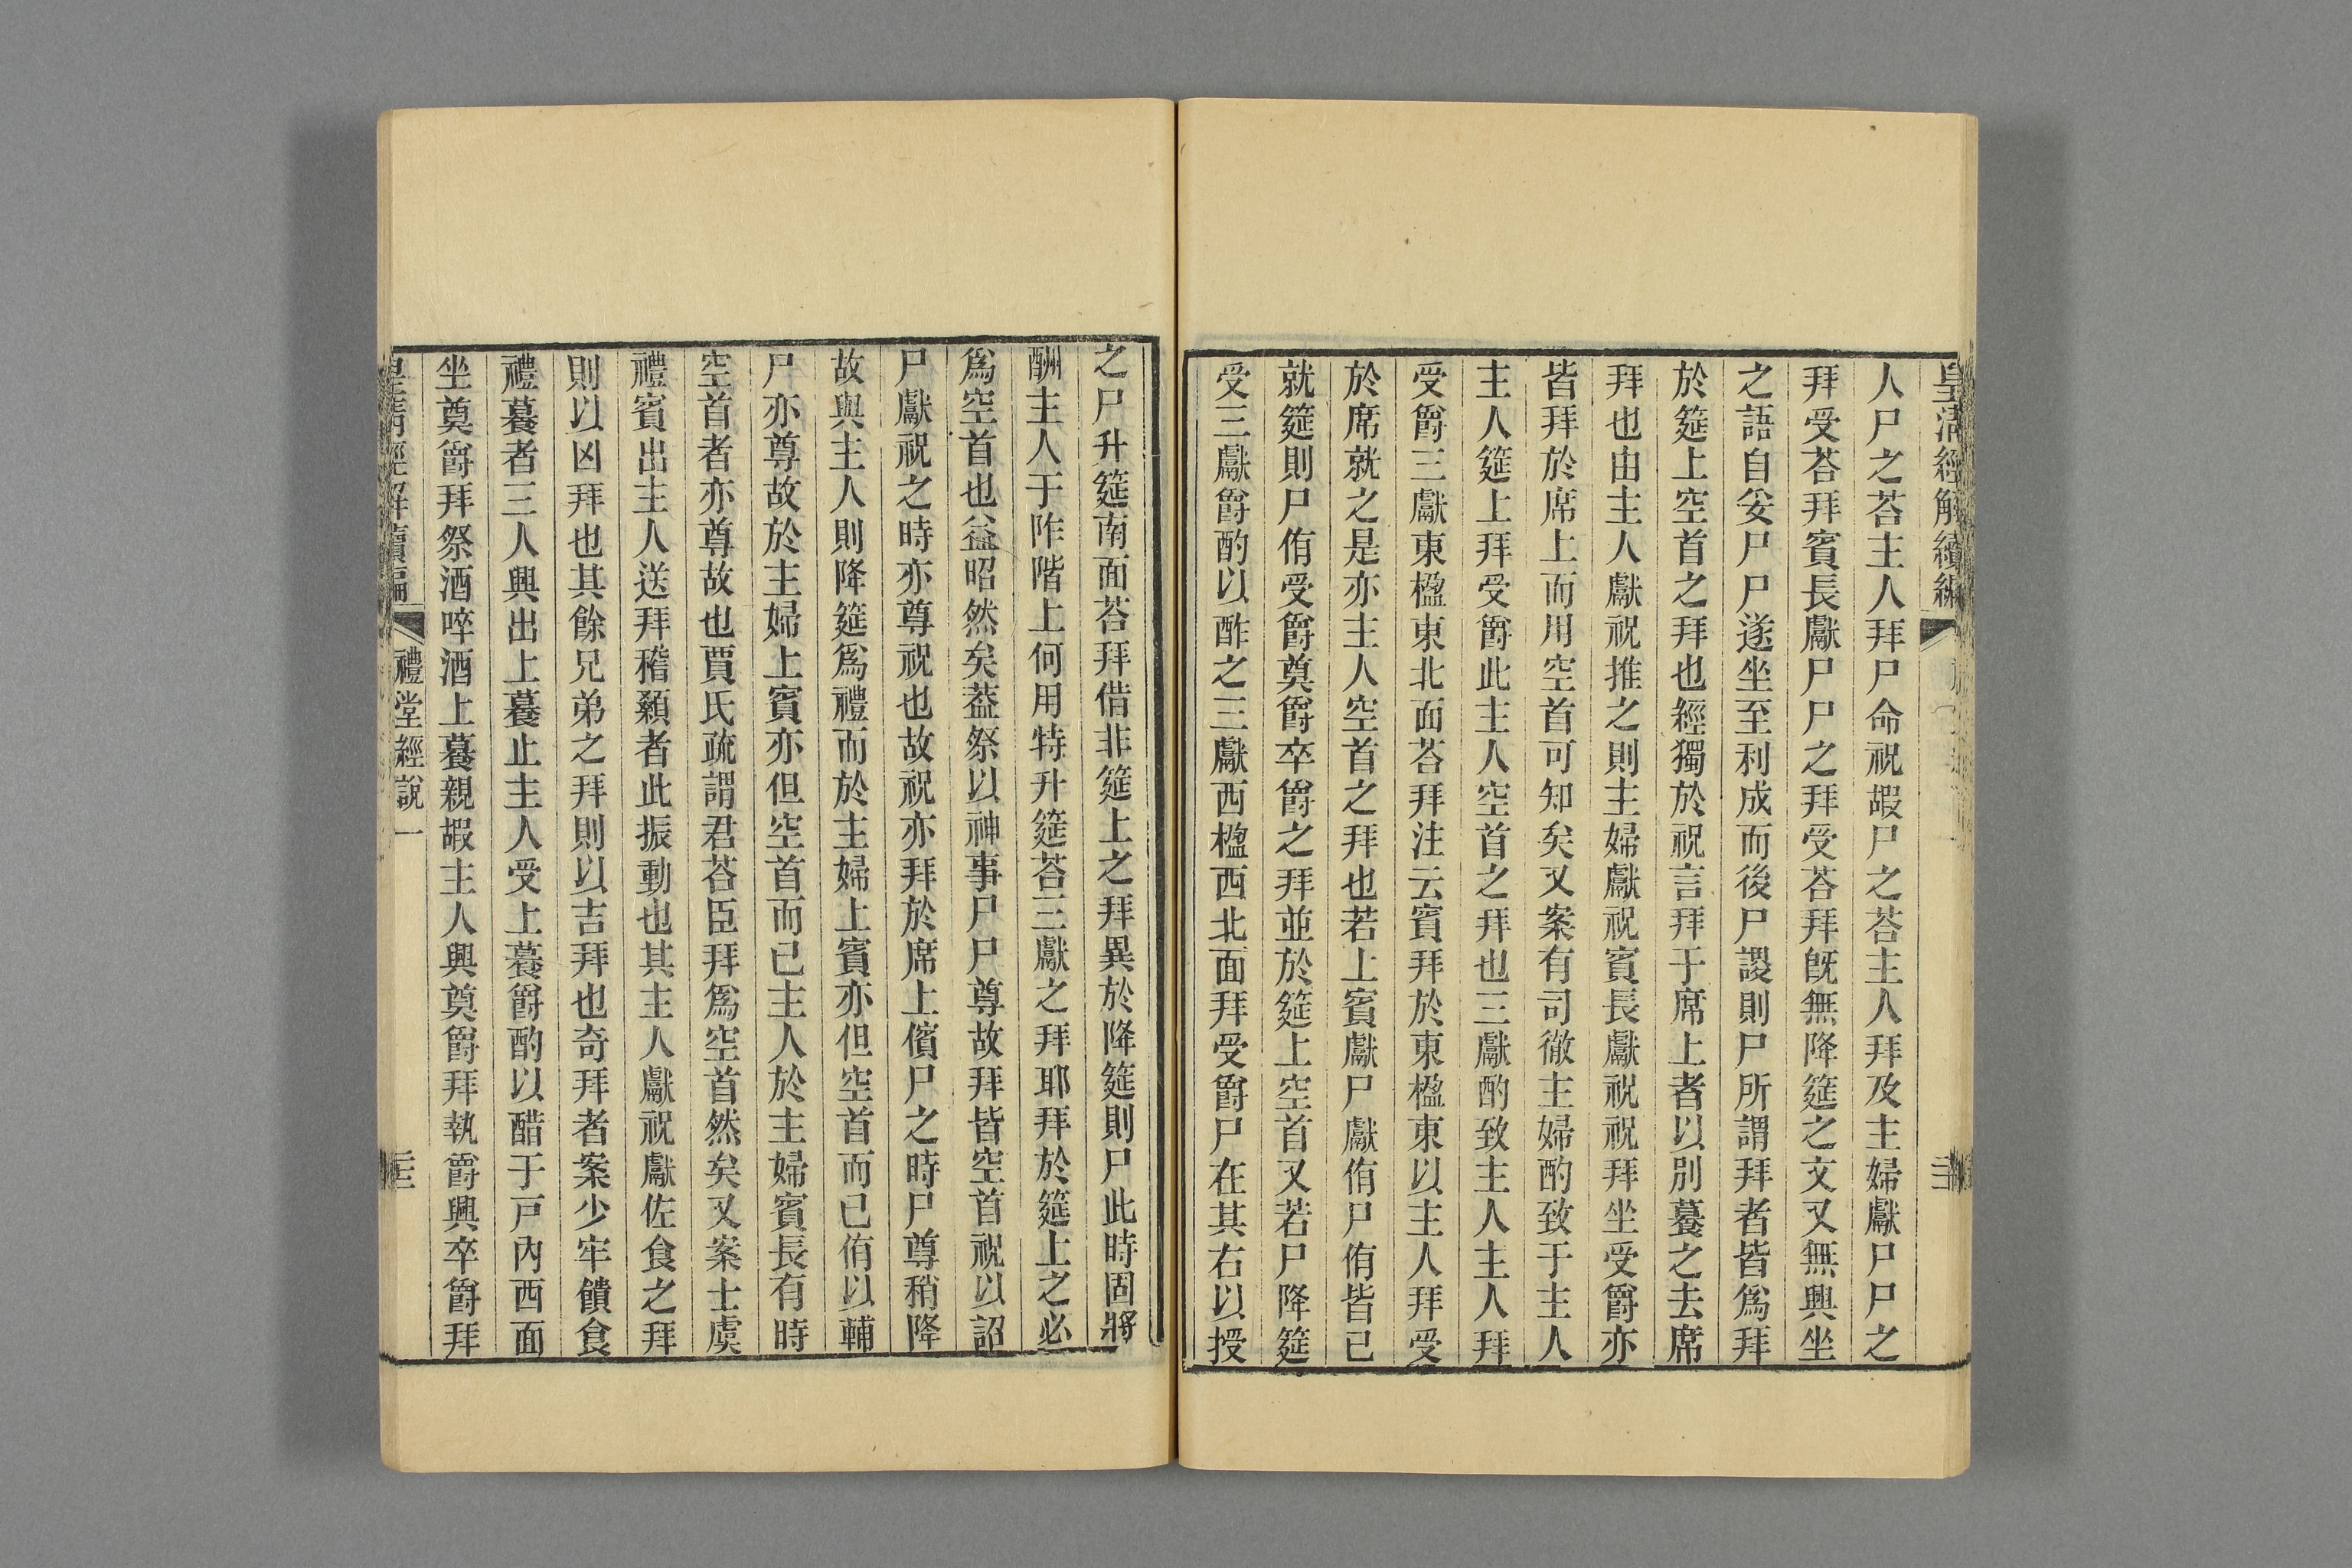 皇清經解續編
人尸之荅主人拜尸命祝嘏尸之荅主人拜及主婦獻尸尸之
拜受荅拜賓長獻尸尸之拜受荅拜旣無降筵之文又無興坐
之語自妥尸尸遂坐至利成而後尸謖則尸所謂拜者皆爲拜
於筵上空首之拜也經獨於祝言拜于席上者以別養之去席
拜也由主人獻祝推之則主婦獻祝賓長獻祝祝拜坐受爵亦
皆拜於席上而用空首可知矣又案有司徹主婦酌致于主人
主人筵上拜受爵此主人空首之拜也三獻酌致主人主人拜
受爵三獻東楹東北面荅拜注云賓拜於東楹東以主人拜受
於席就之是亦主人空首之拜也若上賓獻尸獻侑尸侑皆已
就筵則尸侑受爵奠爵卒爵之拜並於筵上空首又若尸降筵
受三獻爵酌以酢之三獻西楹西北面拜受爵尸在其右以授
之尸升筵南面荅拜偕非筵上之拜異於降筵則尸此時固將
酬主人于阼階上何用特升筵荅三獻之拜耶拜於筵上之必
爲空首也益昭然矣葢祭以神事尸尸尊故拜皆空首祝以詔
尸獻祝之時亦尊祝也故祝亦拜於席上儐尸之時尸尊稍降
故與主人則降筵爲禮而於主婦上賓亦但空首而已侑以輔
尸亦尊故於主婦上賓亦但空首而已主人於主婦賓長有時
空首者亦尊故也賈氏疏謂君荅臣拜爲空首然矣又案士虞
禮賓出主人送拜稽顙者此振動也其主人獻祝獻佐食之拜
則以凶拜也其餘兄弟之拜則以吉拜也奇拜者案少牢饋食
禮養者三人興出上養止主人受上養爵酌以醋于戸內西面
坐奠爵拜祭酒啐酒上養親嘏主人興奠爵拜執爵興卒爵拜
皇清經解續編
禮堂經說一